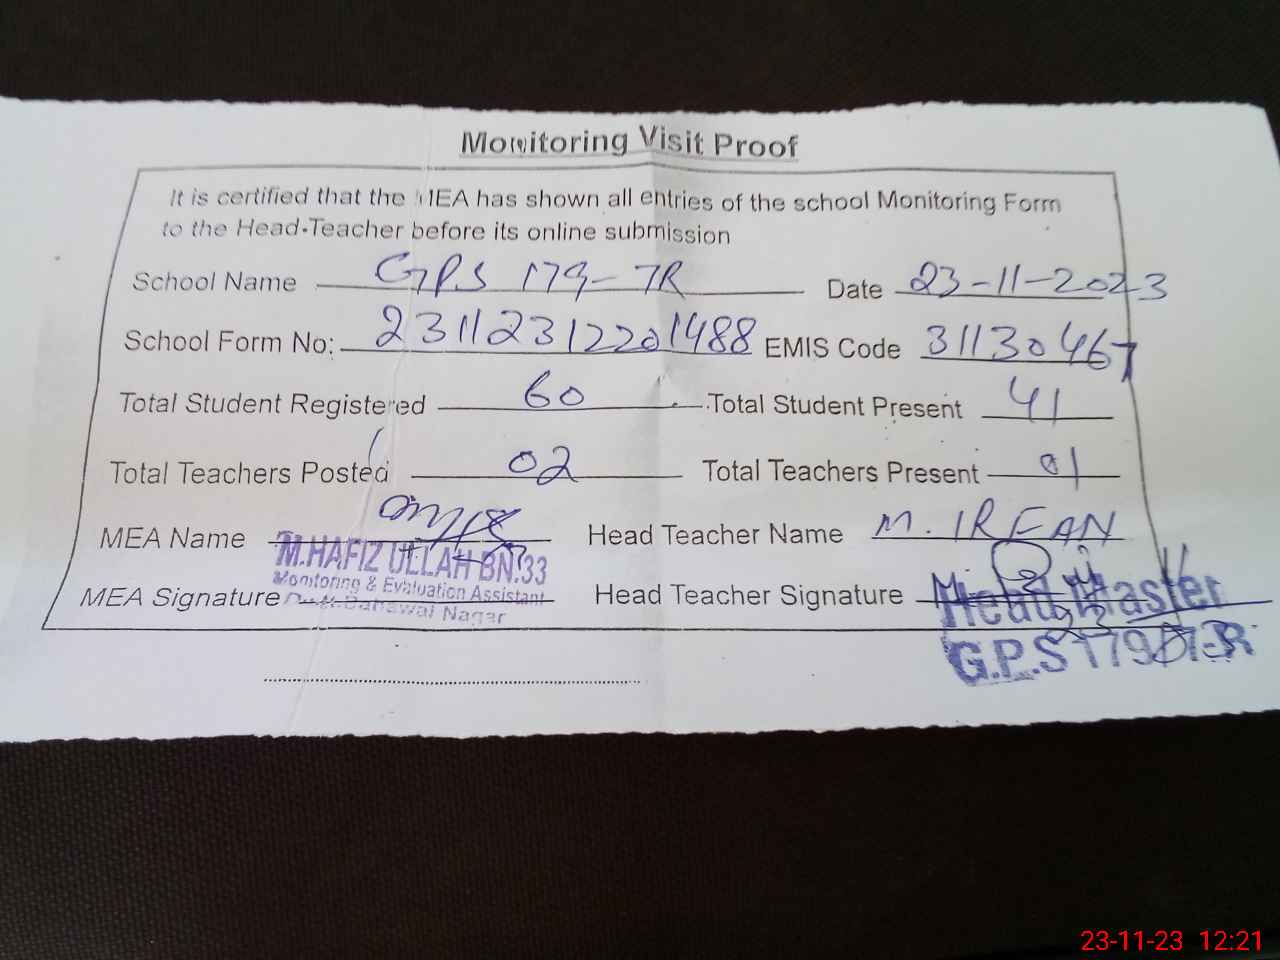 Monitoring Visit Proof
It is certified that the MEA has shown all entries of the school Monitoring Form
to the Head-Teacher before its online submission
School Name GPS 179-7R Date 23-11-2023
School Form No: 231123122201488 EMIS Code 31130467
Total Student Registered 60 Total Student Present 41
Total Teachers Posted 02 Total Teachers Present 01
MEA Name Head Teacher Name M. IRFAN
M.HAFIZ ULLAH BN.33
Monitoring & Evaluation Assistant
MEA Signature Bahawal Nagar Head Teacher Signature Head Master
G.P.S 179/7-R
23-11-23 12:21